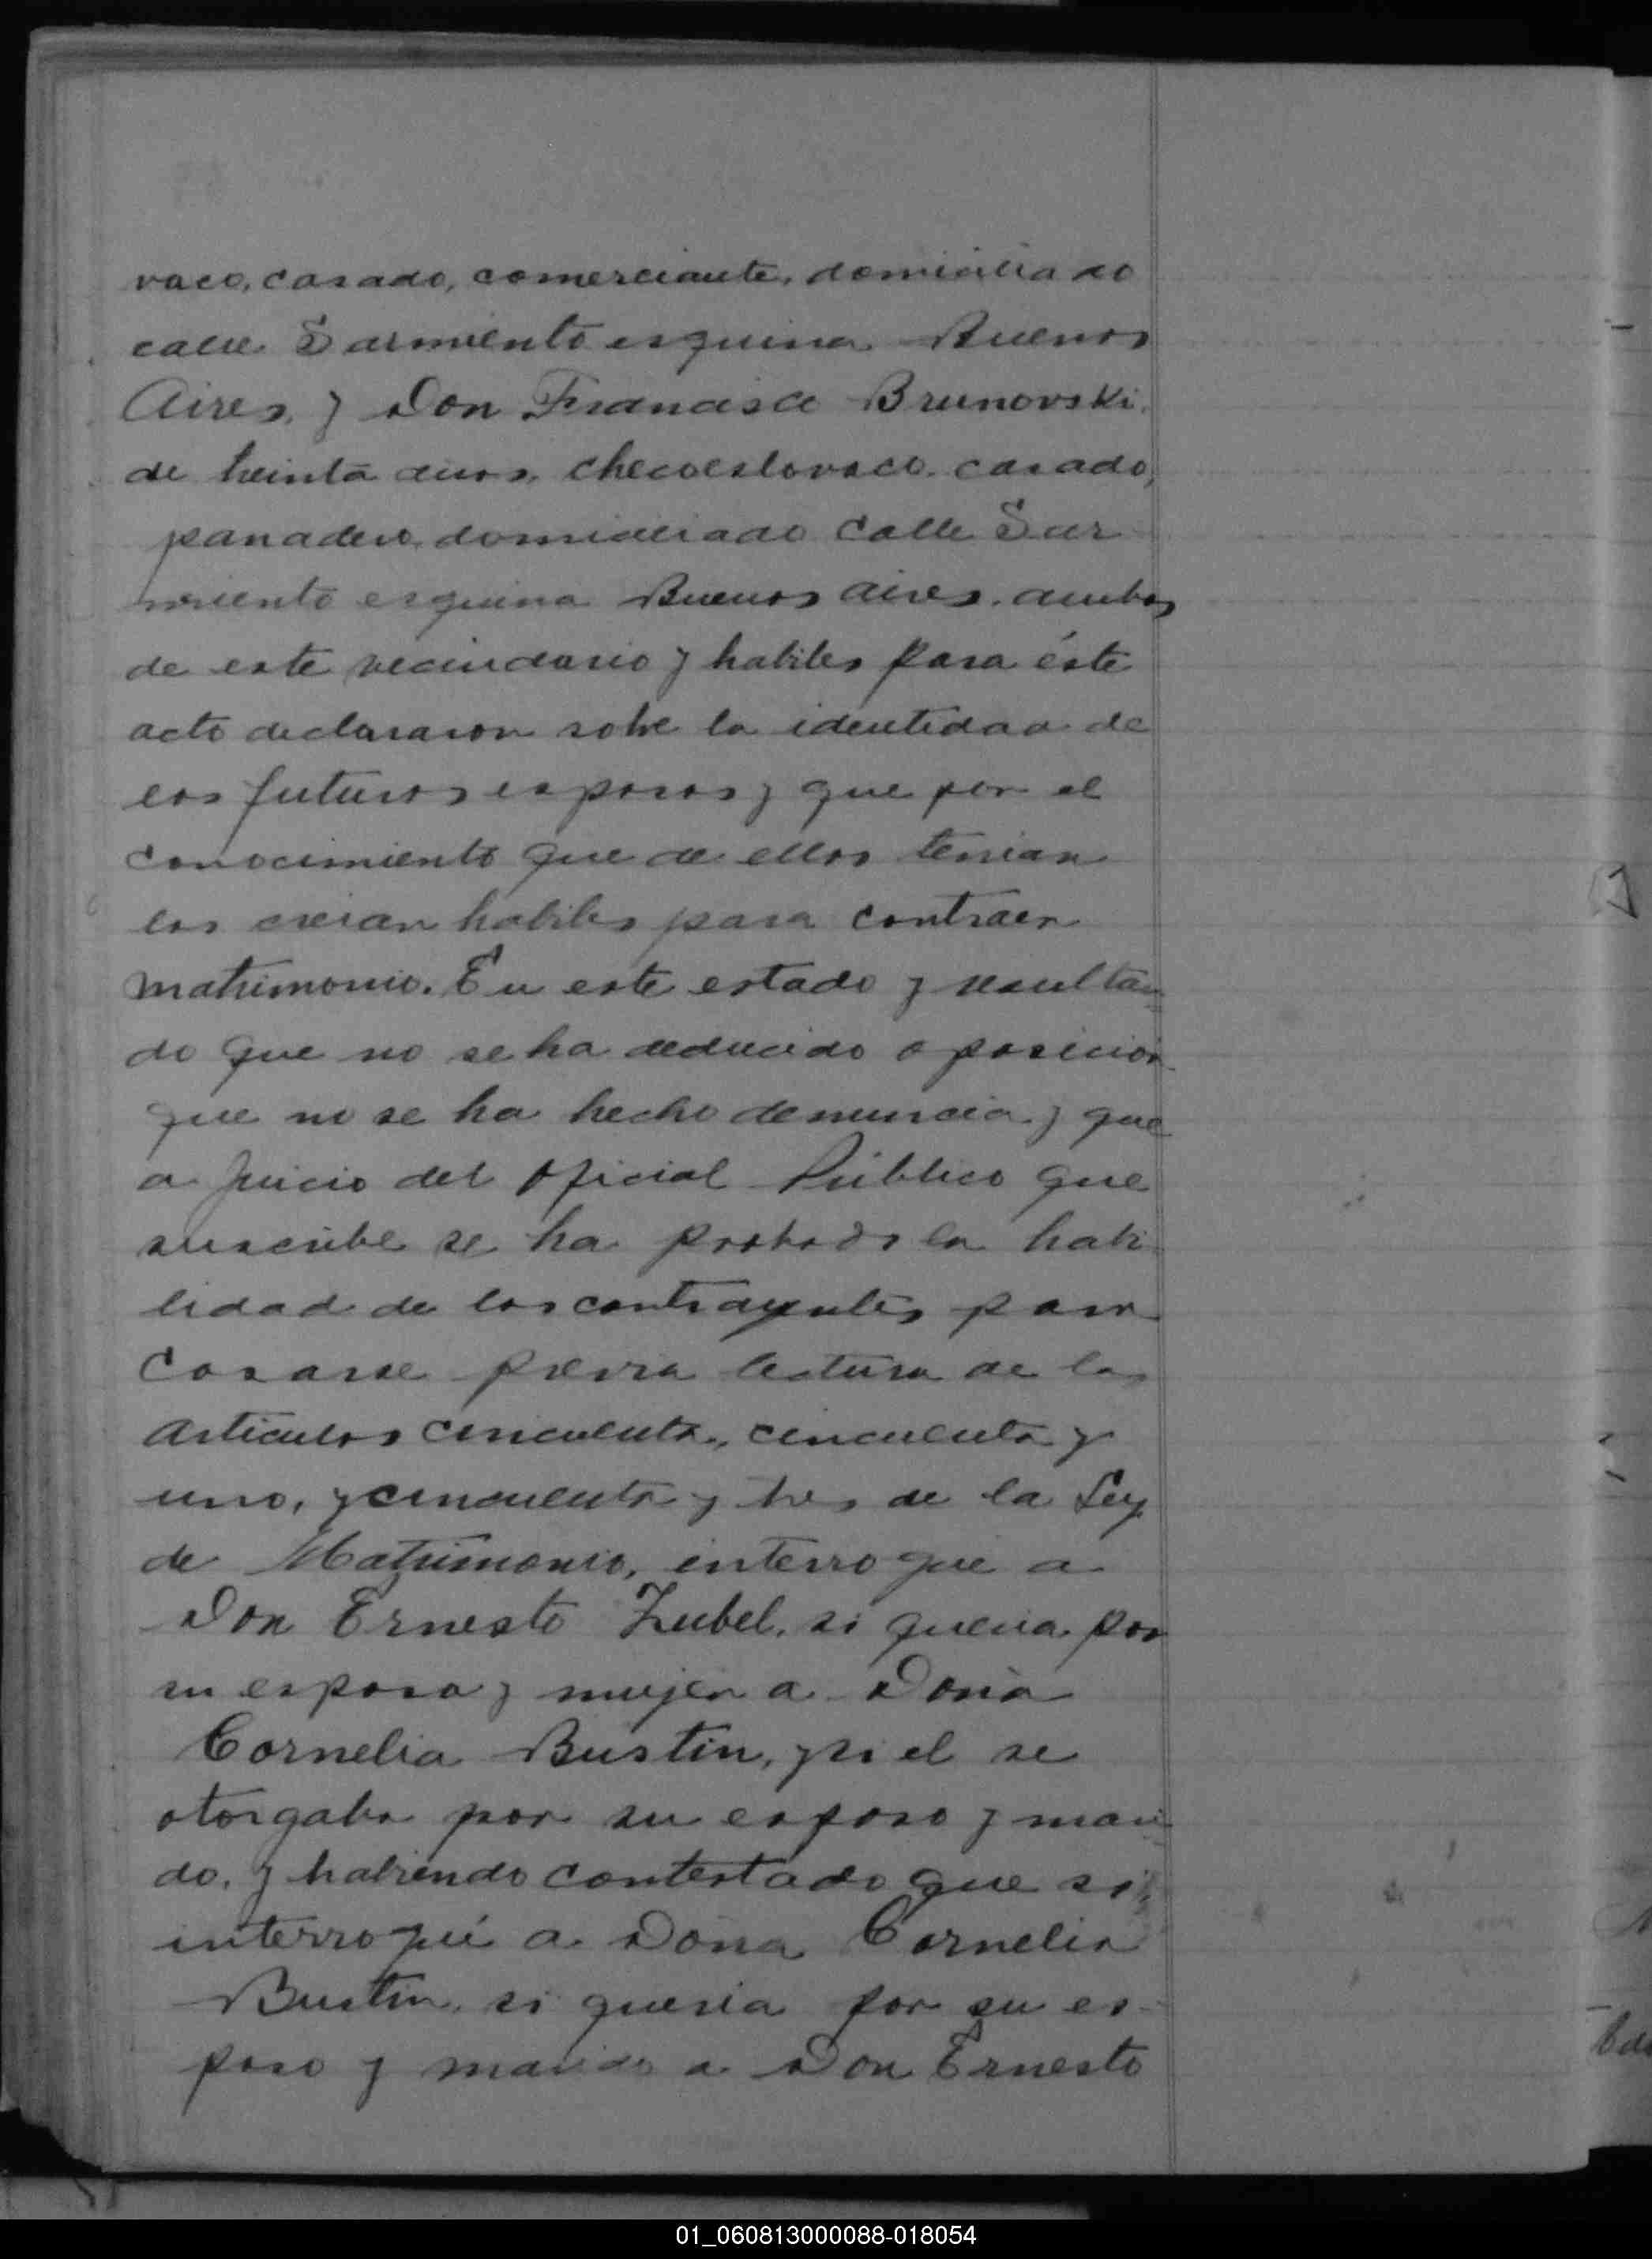 vaco, casado, comerciante, domiciliado
calle Sarmiento esquina Buenos
Aires, y Don Francisco Brunovski,
de treinta años, checoeslovaco, casado,
panadero, domiciliado calle Sar
miento esquina Buenos Aires, ambos
de este vecindario y habiles para éste
acto declararon sobre la identidad de
los futuros esposos y que por el
conocimiento que de ellos tenian
los creian habiles para contraer
matrimonio. En este estado y resultan
do que no se ha deducido oposicion
que no se ha hecho denuncia y que
a juicio del Oficial Público que
suscribe se ha probado la habi
lidad de los contrayentes para
casarse previa lectura de los
articulos cincuenta, cincuenta y
uno, y cincuenta y tres de la Ley
de Matrimonio, interrogué a
Don Ernesto Zubel, si queria por
su esposa y mujer a Doña
Cornelia Bustin, y si el se
otorgaba por su esposo y mari
do, y habiendo contestado que si,
interrogué a Doña Cornelia
Bustin, si queria por su es-
poso y marido a Don Ernesto
01_060813000088-018054